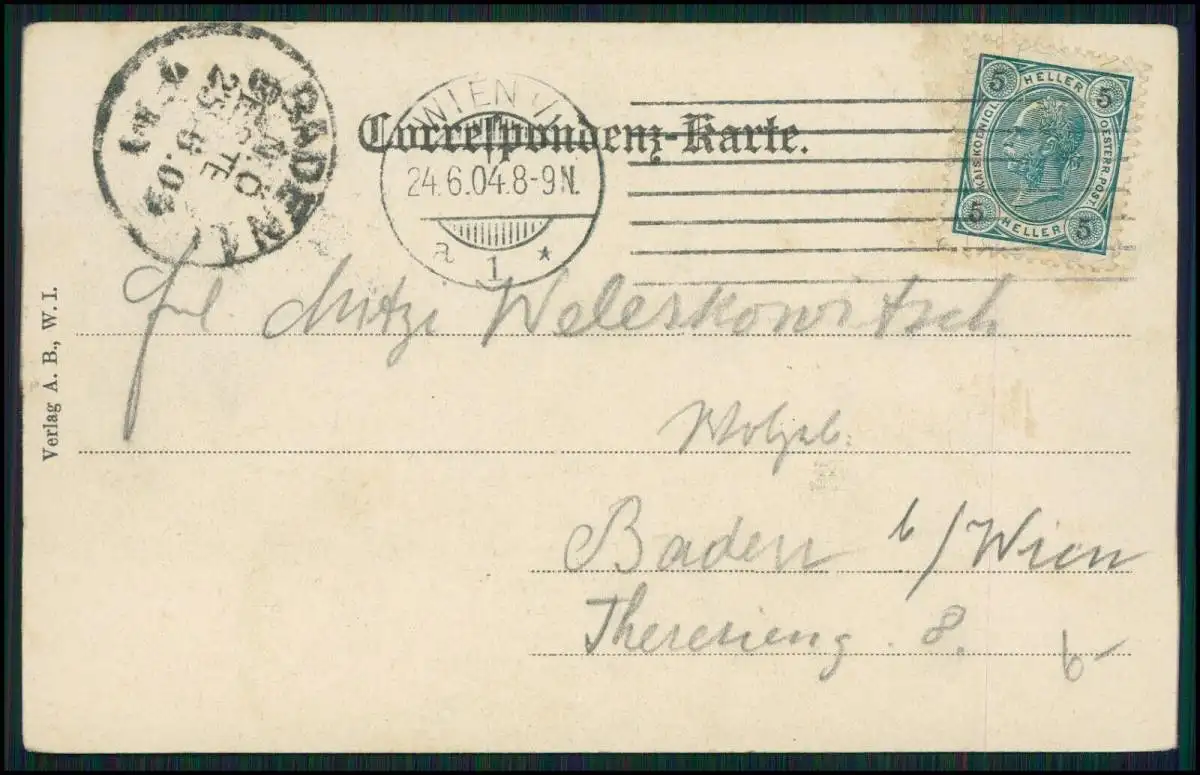 BADEN 1
25 6 04
WIEN VI
Correspondenz-Karte.
24.6.04.8-9N.
a 1 *
5 HELLER 5
KAIS.KOENIGL.
OESTERR.POST.
5 HELLER 5
Frl. Mitzi Weleskowitsch
Wohlgeb.
Baden b/Wien
Theresieng. 8.
6-
Verlag A. B., W. I.